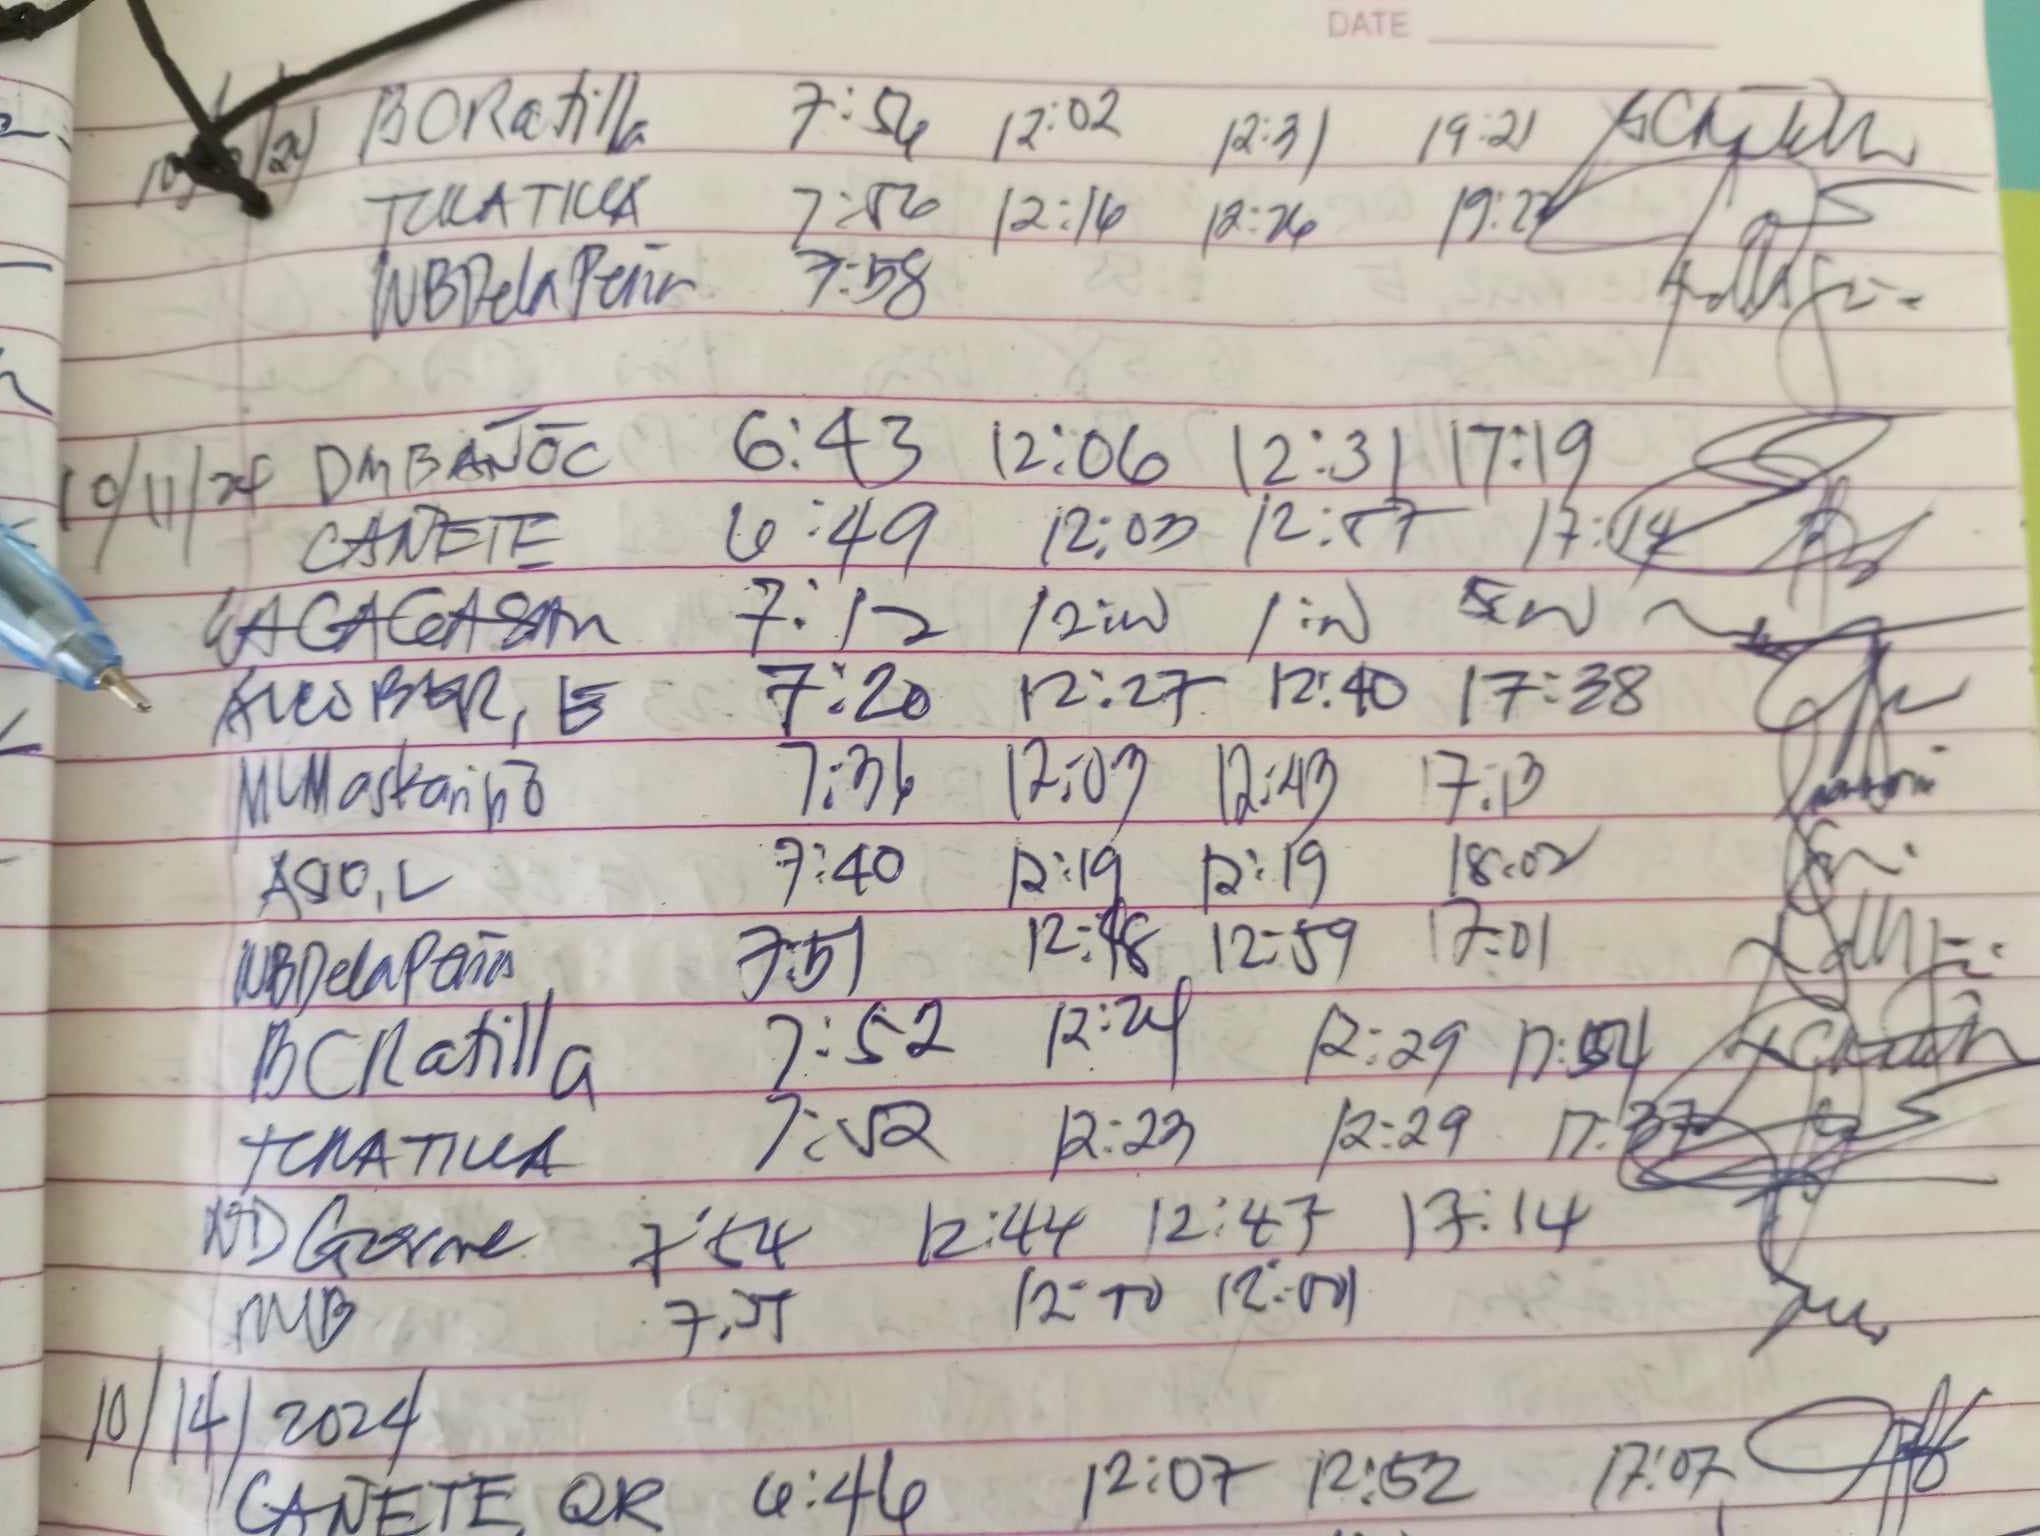 DATE
BCRatilla 7:56 12:02 12:31 19:21
TCRATILLA 7:56 12:16 12:26 19:22
WBDelaPeña 7:58
10/11/24 DMBAÑOC 6:43 12:06 12:31 17:19
CAÑETE 6:49 12:03 12:57 17:14
7:12
ALCOBER, E 7:20 12:27 12:40 17:38
MLMaskariño 7:36 12:03 12:43 17:13
ASIO, L 7:40 12:19 12:19 18:02
WBDelaPeña 7:51 12:48 12:59 17:01
BCRatilla 7:52 12:24 12:29 17:54
TCRATILLA 7:52 12:23 12:29 17:37
7:54 12:44 12:47 17:14
MB
10/14/2024
CAÑETE, QR 6:46 12:07 12:52 17:07